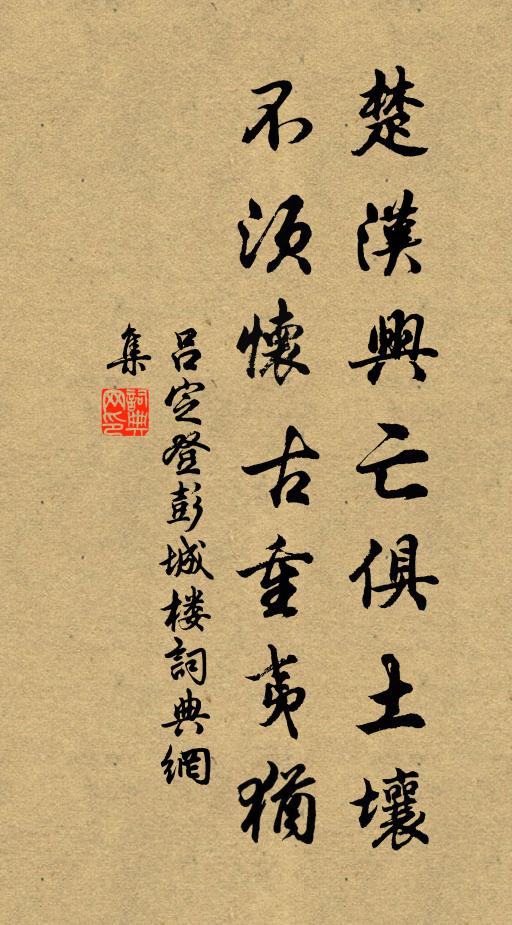 楚漢興亡俱土壤
不須懷古重夷猶
呂定登彭城楼詞典網
集
詞典網印